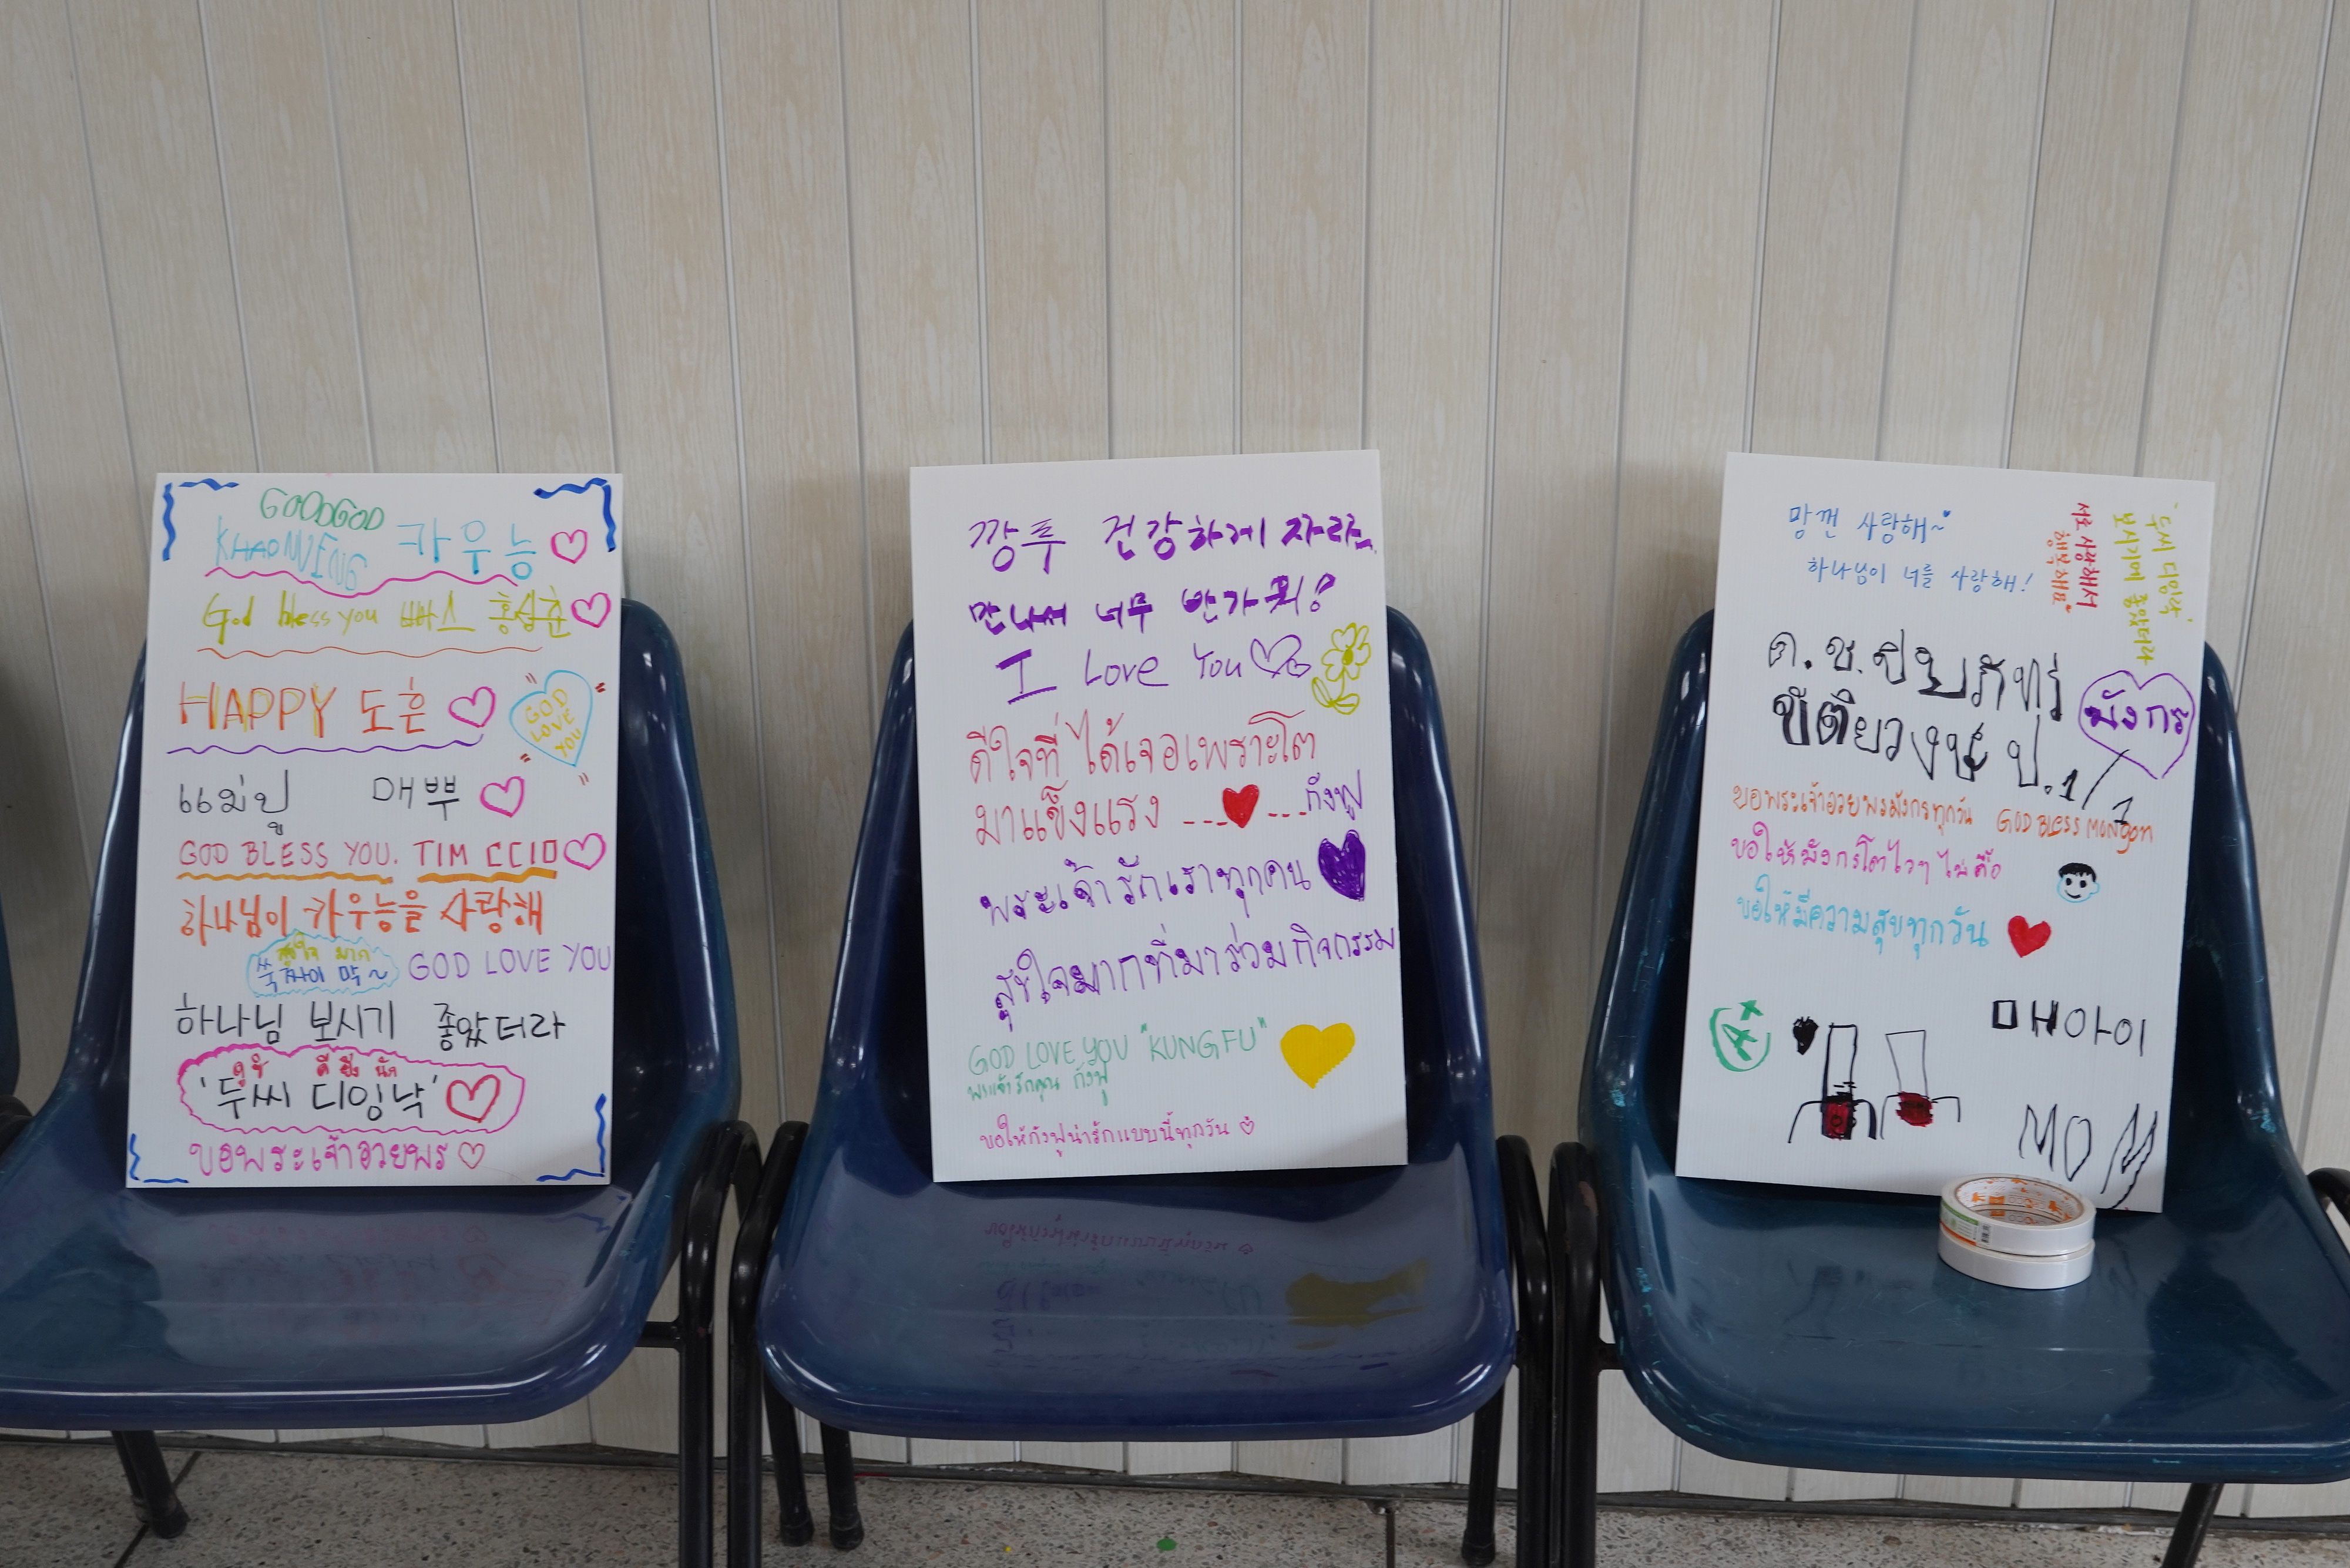 GOODGOD
KHAONIENG 카우능
God bless you 빠스 홍성훈
HAPPY 도흔
GOD
LOVE
YOU
แม่ปู 매뿌
GOD BLESS YOU. TIM
하나님이 카우능을 사랑해
สุขใจ มาก
쑥짜이 막~
GOD LOVE YOU
하나님 보시기 좋았더라
ดูซิ ดียิ่ง นัก
'두씨 디잉낙'
ขอพระเจ้าอวยพร
깡푸 건강하게 자라
만나서 너무 반가워!
I Love You
ดีใจที่ได้เจอเพราะโต
มาแข็งแรง ---
---กังฟู
พระเจ้ารักเราทุกคน
สุขใจมากที่มาร่วมกิจกรรม
GOD LOVE YOU "KUNGFU"
พระเจ้ารักคุณ กังฟู
ขอให้กังฟูน่ารักแบบนี้ทุกวัน
망껀 사랑해~
하나님이 너를 사랑해!
서로 사랑해서
행복해요"
"두씨 디잉낙"
보시기에 좋았더라
ด.ช.
ป.1/1
มังกร
ขอพระเจ้าอวยพรมังกรทุกวัน GOD BLESS MONGON
ขอให้มังกรโตไวๆ ไม่ดื้อ
ขอให้มีความสุขทุกวัน
A+
매아이
MOM